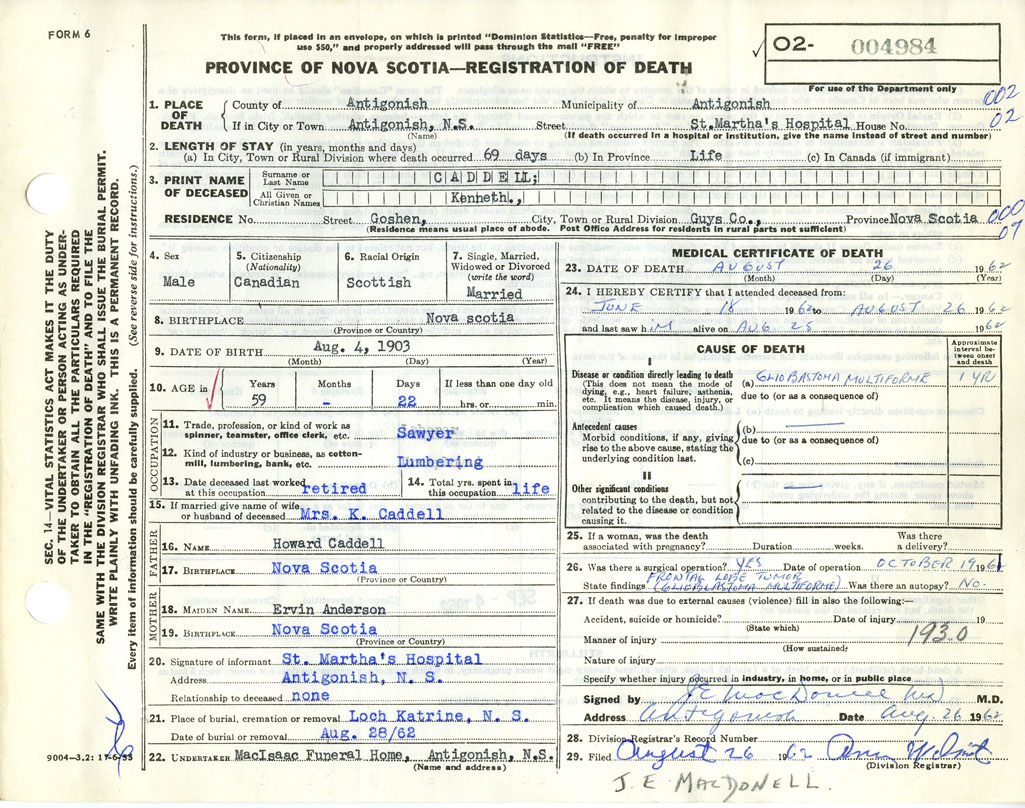 FORM 6
This form, if placed in an envelope, on which is printed "Dominion Statistics—Free, penalty for improper
use $50," and properly addressed will pass through the mail "FREE"
PROVINCE OF NOVA SCOTIA—REGISTRATION OF DEATH
✓ 02- 004984
For use of the Department only
002
02
1. PLACE OF DEATH { County of Antigonish Municipality of Antigonish
If in City or Town Antigonish, N.S. Street St.Martha's Hospital House No.
(Name) (If death occurred in a hospital or institution, give the name instead of street and number)
2. LENGTH OF STAY (in years, months and days)
(a) In City, Town or Rural Division where death occurred 69 days (b) In Province Life (c) In Canada (if immigrant)
3. PRINT NAME OF DECEASED { Surname or Last Name CADDELL;
All Given or Christian Names Kenneth.,
RESIDENCE No. Street Goshen, City, Town or Rural Division Guys Co., Province Nova Scotia
(Residence means usual place of abode. Post Office Address for residents in rural parts not sufficient)
000
07
4. Sex Male
5. Citizenship (Nationality) Canadian
6. Racial Origin Scottish
7. Single, Married, Widowed or Divorced (write the word) Married
8. BIRTHPLACE Nova scotia
(Province or Country)
9. DATE OF BIRTH Aug. 4, 1903
(Month) (Day) (Year)
10. AGE in Years 59 Months - Days 22 If less than one day old hrs. or min.
OCCUPATION
11. Trade, profession, or kind of work as spinner, teamster, office clerk, etc. Sawyer
12. Kind of industry or business, as cotton-mill, lumbering, bank, etc. Lumbering
13. Date deceased last worked at this occupation retired
14. Total yrs. spent in this occupation life
15. If married give name of wife or husband of deceased Mrs. K. Caddell
FATHER
16. NAME Howard Caddell
17. BIRTHPLACE Nova Scotia
(Province or Country)
MOTHER
18. MAIDEN NAME Ervin Anderson
19. BIRTHPLACE Nova Scotia
(Province or Country)
20. Signature of informant St. Martha's Hospital
Address Antigonish, N. S.
Relationship to deceased none
21. Place of burial, cremation or removal Loch Katrine, N. S.
Date of burial or removal Aug. 28/62
22. UNDERTAKER MacIsaac Funeral Home, Antigonish, N.S.
(Name and address)
MEDICAL CERTIFICATE OF DEATH
23. DATE OF DEATH AUGUST 26 1962
(Month) (Day) (Year)
24. I HEREBY CERTIFY that I attended deceased from:
JUNE 18 1962 to AUGUST 26 1962
and last saw him alive on AUG. 25 1962
CAUSE OF DEATH
Approximate interval between onset and death
I
Disease or condition directly leading to death
(This does not mean the mode of dying, e.g., heart failure, asthenia, etc. It means the disease, injury, or complication which caused death.)
(a) GLIOBASTOMA MULTIFORME 1 YR
due to (or as a consequence of)
Antecedent causes
Morbid conditions, if any, giving rise to the above cause, stating the underlying condition last.
(b)
due to (or as a consequence of)
(c)
II
Other significant conditions
contributing to the death, but not related to the disease or condition causing it.
25. If a woman, was the death associated with pregnancy? Duration weeks. Was there a delivery?
26. Was there a surgical operation? YES Date of operation OCTOBER 19 1961
State findings FRONTAL LOBE TUMOR (GLIOBLASTOMA MULTIFORME) Was there an autopsy? NO.
27. If death was due to external causes (violence) fill in also the following:—
Accident, suicide or homicide? Date of injury 19
(State which)
193.0
Manner of injury
(How sustained)
Nature of injury
Specify whether injury occurred in industry, in home, or in public place
Signed by J E MacDonell MD M.D.
Address Antigonish Date Aug. 26 1962
28. Division Registrar's Record Number
29. Filed August 26 1962
(Division Registrar)
J. E MACDONELL.
SEC. 14—VITAL STATISTICS ACT MAKES IT THE DUTY
OF THE UNDERTAKER OR PERSON ACTING AS UNDER-
TAKER TO OBTAIN ALL THE PARTICULARS REQUIRED
IN THE "REGISTRATION OF DEATH" AND TO FILE THE
SAME WITH THE DIVISION REGISTRAR WHO SHALL ISSUE THE BURIAL PERMIT.
WRITE PLAINLY WITH UNFADING INK. THIS IS A PERMANENT RECORD.
Every item of information should be carefully supplied. (See reverse side for instructions.)
9004—3.2: 17-6-55